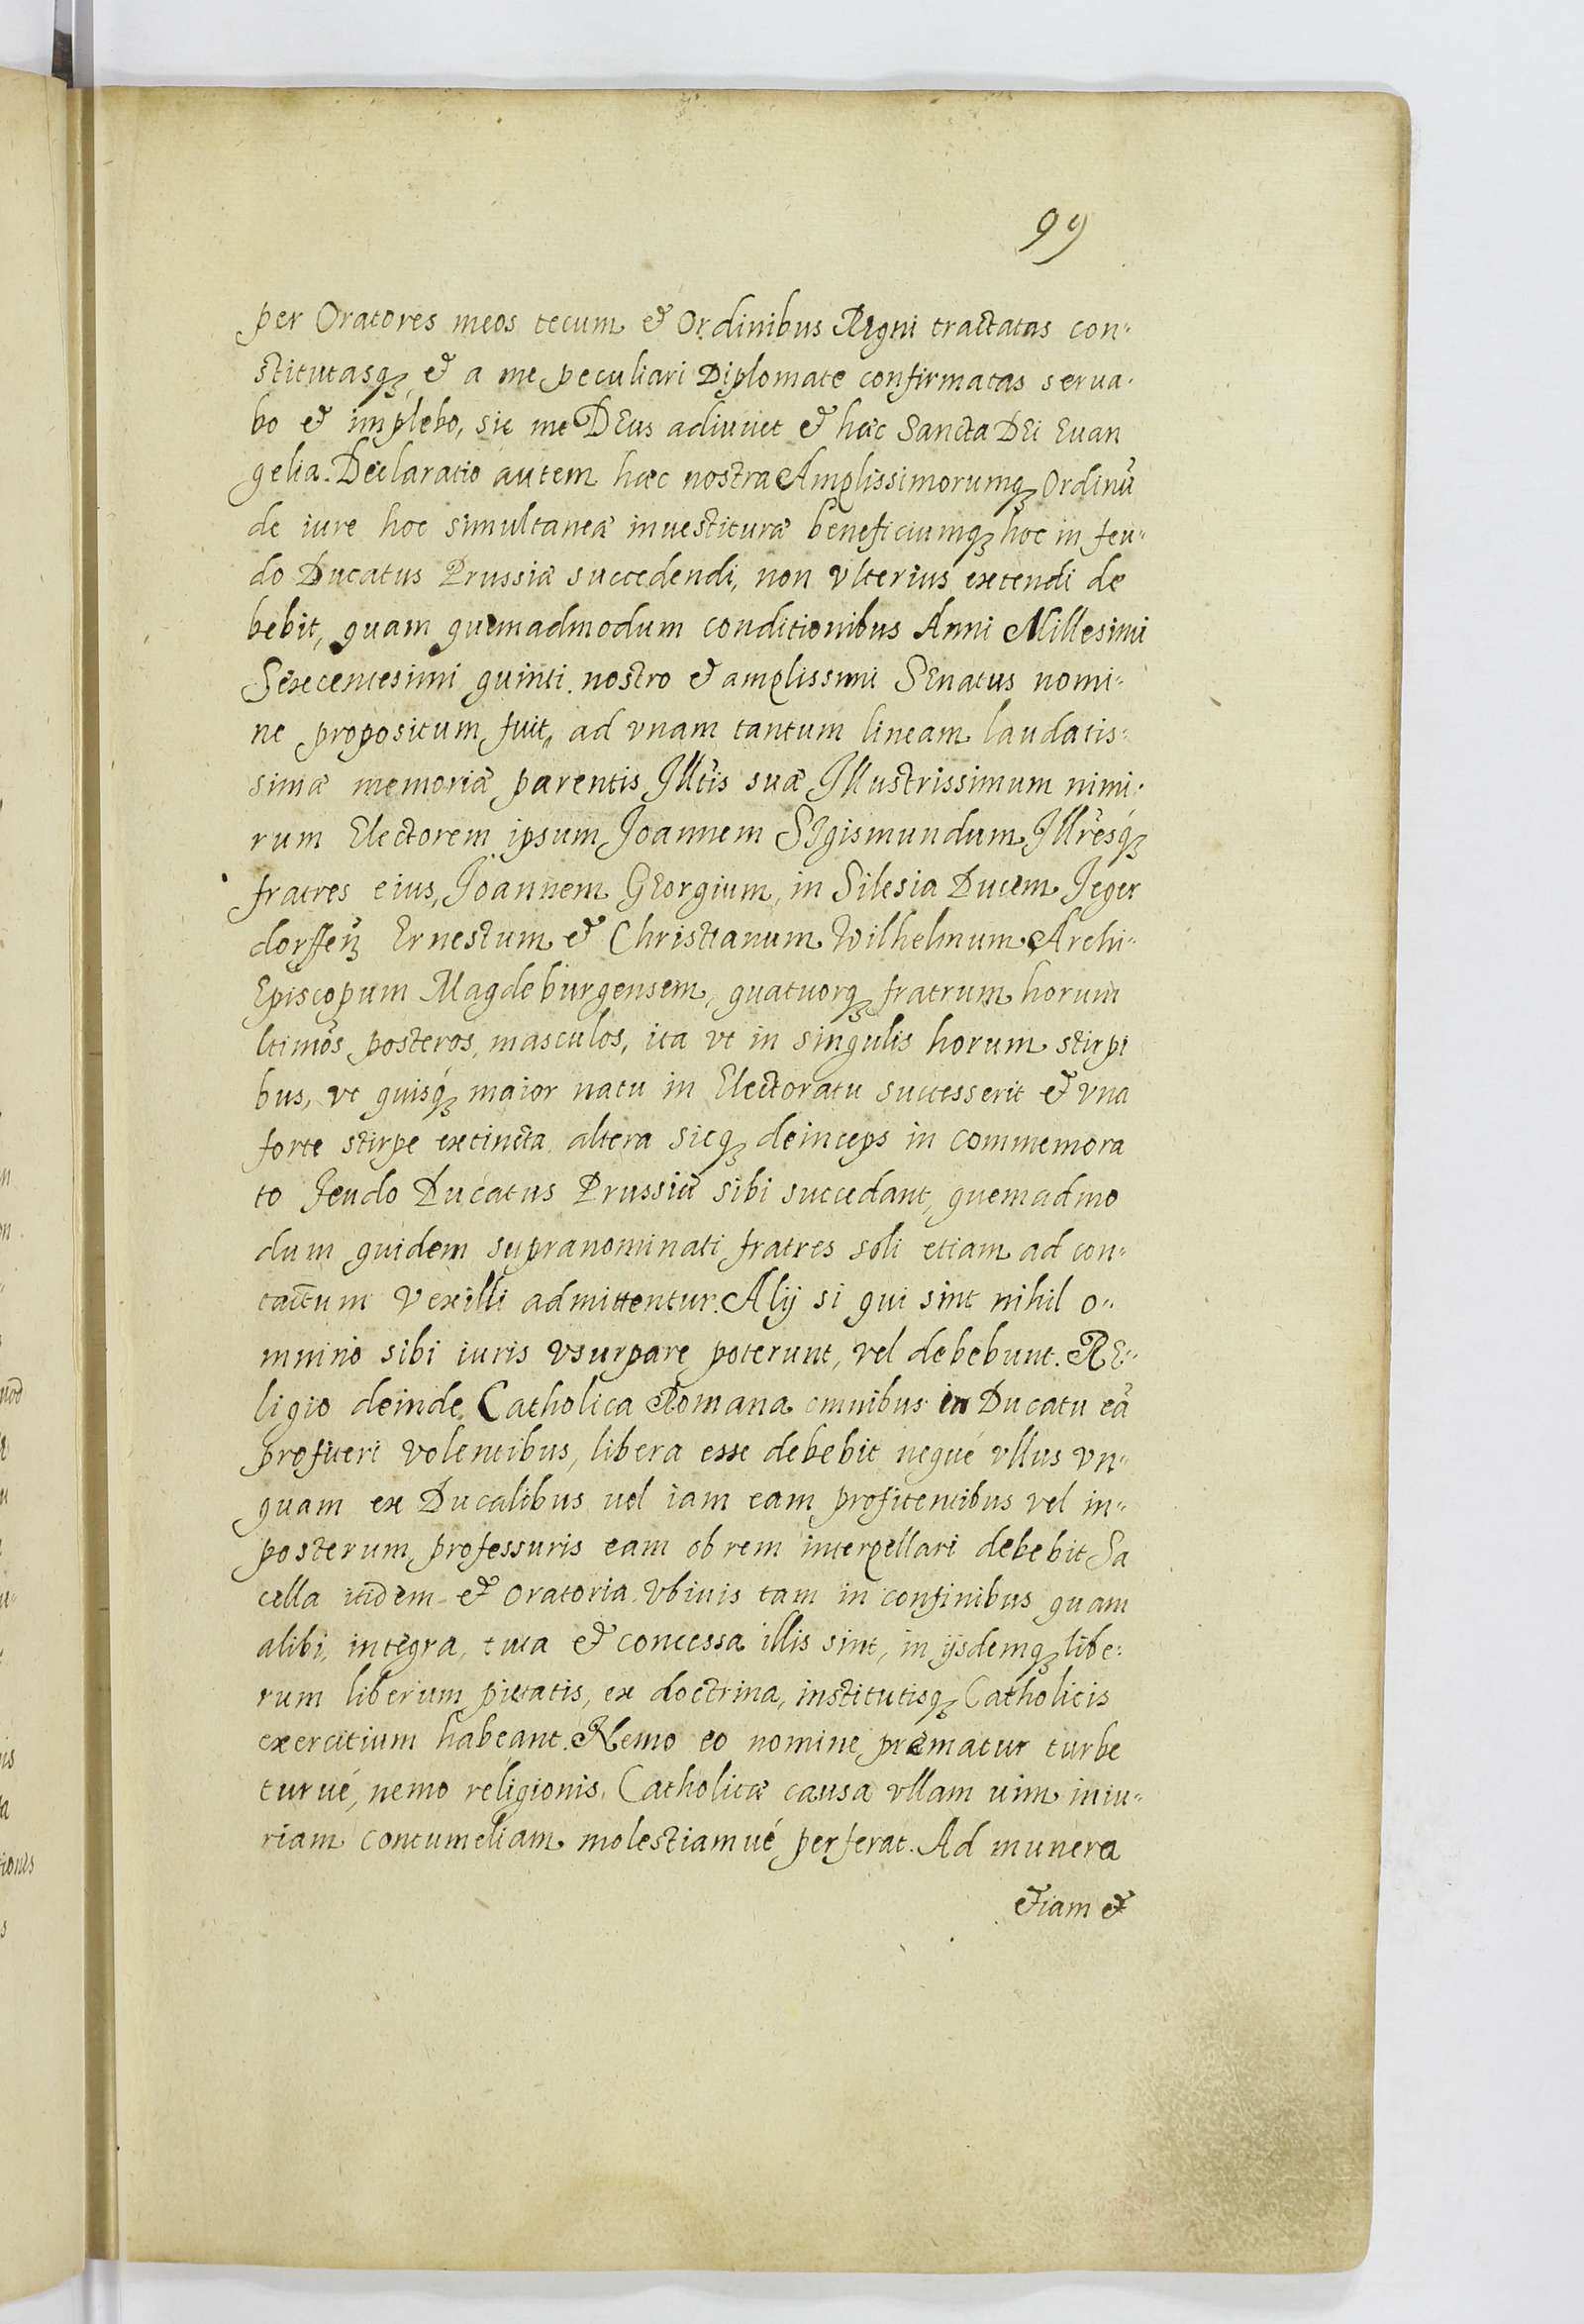 99
per Oratores meos tecum & Ordinibus REgni tractatas con-
stitutasq₃, & a me peculiari Diplomate confirmatas serua-
bo & implebo, sic me DEus adiuuet & hæc Sancta DEi Euan
gelia. Declaratio autem hæc nostra Amplissimorumq₃ Ordinũ
de iure hoc simultaneæ inuestituræ beneficiumq₃ hoc in feu-
do Ducatus Prussiæ succedendi, non vlterius extendi de
bebit, quam quemadmodum conditionibus Anni Millesimi
Sexcentesimi quinti. nostro & amplissimi SEnatus nomi-
ne propositum fuit, ad vnam tantum lineam laudatis-
simæ memoriæ parentis Illtis suæ Illustrissimum nimi-
rum Electorem ipsum Joannem SIgismundum Illresq₃
fratres eius, Joannem GEorgium, in Silesia Ducem Jeger
dorffeñ Ernestum & Christianum Wilhelmum Archi-
Episcopum Magdeburgensem, quatuorq₃ fratrum horum
ltimos posteros, masculos, ita vt in singulis horum stirpi
bus, vt quisq₃ maior natu in Electoratu successerit & vna
forte stirpe extincta altera sicq₃ deinceps in commemora
to feudo Ducatus Prussiæ sibi succedant, quemadmo
dum quidem supranominati fratres soli etiam ad con-
tactum Vexilli admittentur. Alij si qui sint nihil o-
mnino sibi iuris vsurpare poterunt, vel debebunt. RE-
ligio deinde Catholica Romana omnibus in Ducatu eã
profiteri volentibus, libera esse debebit neque vllus vn-
quam ex Ducalibus uel iam eam profitentibus vel in-
posterum professuris eam ob rem interpellari debebit Sa
cella itidem & oratoria vbiuis tam in confinibus quam
alibi, integra, tuta & concessa illis sint, in ijsdemq₃ libe-
rum liberum pietatis, ex doctrina, institutisq₃ Catholicis
exercitium habeant. Nemo eo nomine prematur turbe
turué, nemo religionis Catholicæ causa vllam uim iniu-
riam contumeliam molestiamué perferat. Ad munera
etiam &